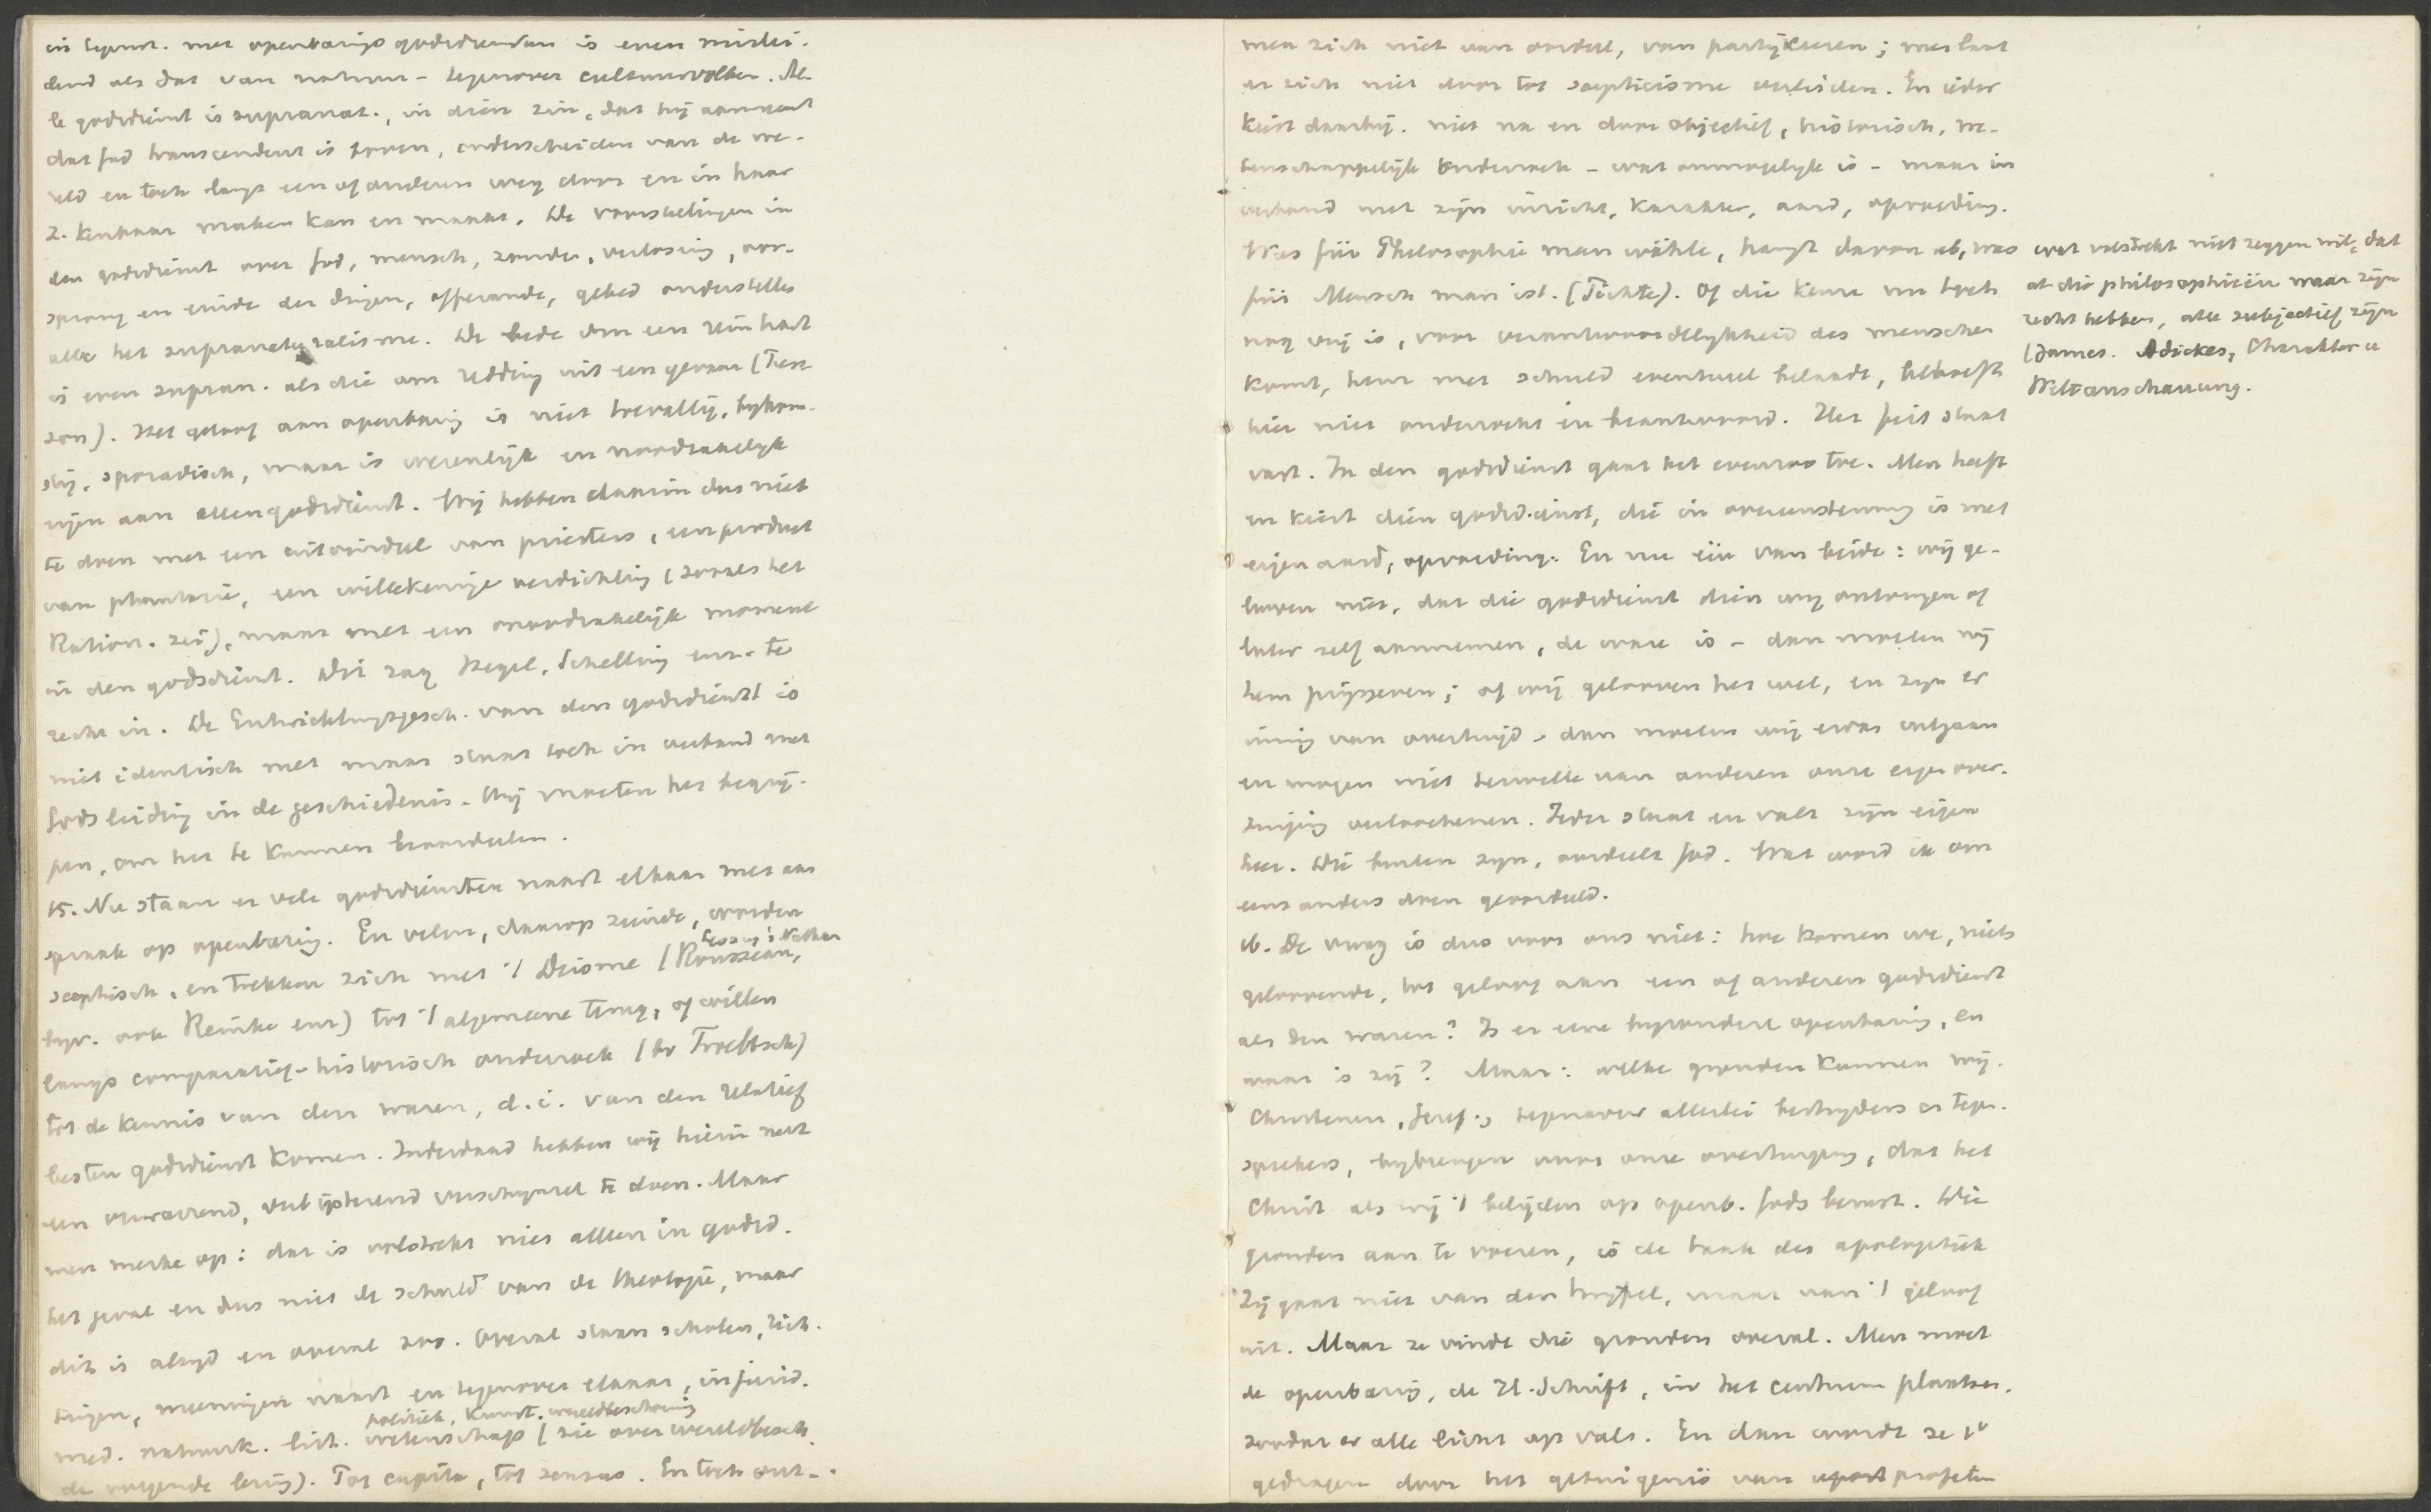 in tegenst. met openbaringsgodsdiensten is even mislei-
dend als dat van natuur- tegenover cultuurvolken. Al-
le godsdienst is supranat., in dien zin, dat hij aanneemt
dat God transcendent is boven, onderscheiden van de we-
reld en toch langs een of anderen weg door en in haar
z. kenbaar maken kan en maakt. De voorstellingen in
den godsdienst over God, mensch, zonde, verlossing, oor-
sprong en einde der dingen, offerande, gebed onderstellen
alle het supranaturalisme. De bede om een rein hart
is even supran. als die om redding uit een gevaar (Tenny
son). Het geloof aan openbaring is niet toevallig, bykom-
stig, sporadisch, maar is wezenlijk en noodzakelyk
eigen aan allen godsdienst. Wij hebben daarin dus niet
te doen met een uitvindsel van priesters, een product
van phantasie, een willekeurige verdichting (zooals het
Ration. zei), maar met een noodzakelijk moment
in den godsdienst. Dit zag Hegel, Schelling enz. te
recht in. De Entwicklungsgesch. van den godsdienst is
niet identisch met maar staat toch in verband met
Gods leiding in de geschiedenis. Wij moeten het begrij-
pen, om het te kunnen beoordeelen.
15. Nu staan er vele godsdiensten naast elkaar met aan
spraak op openbaring. En velen, daarop ziende, worden
sceptisch, en trekken zich met 't Deisme (Rousseau, Lessing's Nathan
byv. ook Reinke enz) tot 't algemeene terug, of willen
langs comparatief-historisch onderzoek (bv Troeltsch)
tot de kennis van den waren, d.i. van den relatief
besten godsdienst komen. Inderdaad hebben wij hierin met
een verwarrend, verbijsterend verschynsel te doen. Maar
men merke op: dat is volstrekt niet alleen in godsd.
het geval en dus niet de schuld van de theologie, maar
dit is altyd en overal zoo. Overal staan scholen, rich-
tingen, meeningen naast en tegenover elkaar, in jurid.
politiek, kunst, wereldbeschouwing
med. natuurk. lit. wetenschap (zie over wereldbesch.
de volgende lering). Tot capita, tot sensus. En toch ont-
men zich niet van oordeel, van partijkiezen; men laat
er zich niet door tot scepticisme verleiden. En ieder
kiest daarbij niet na en door objectief, historisch, we-
tenschappelijk onderzoek - wat onmogelijk is - maar in
verband met zijn inzicht, karakter, aard, opvoeding.
Was für Philosophie man wähle, hangt davon ab, was
für Mensch man ist. (Fichte). Of die keuze nu toch
nog vrij is, voor verantwoordelijkheid des menschen
komt, hem met schuld eventueel belaadt, behoeft
hier niet onderzocht en beantwoord. Het feit staat
vast. In den godsdienst gaat het evenzoo toe. Men heeft
en kiest dien godsdienst, die in overeenstemming is met
eigen aard, opvoeding. En nu één van beide: wij ge-
looven niet, dat die godsdienst dien wij ontvangen of
later zelf aannemen, de ware is - dan moeten wij
hem prijsgeven; of wij gelooven het wel, en zijn er
innig van overtuigd - dan moeten wij ervas uitgaan
en mogen niet terwille van anderen onze eigen over-
tuiging verloochenen. Ieder staat en valt zijn eigen
heer. Die buiten zyn, oordeelt God. Wat word ik om
eens anders doen geoordeeld.
16. De vraag is dus voor ons niet: hoe komen we, niets
geloovende, tot geloof aan een of anderen godsdienst
als den waren? Is er eene byzondere openbaring, en
waar is zij? Maar: welke gronden kunnen wij.
Christenen, Geref., tegenover allerlei bestryders en tegen-
sprekers, bybrengen voor onze overtuiging, dat het
Christ. als wij 't belijden op openb. Gods berust. Die
gronden aan te voeren, is de taak der apologetiek
Zij gaat niet van den twyfel, maar van 't geloof
uit. Maar ze vindt die gronden overal. Men moet
de openbaring, de H. Schrift, in het centrum plaatsen,
zoodat er alle licht op valt. En dan wordt ze 1°
gedragen door het getuigenis van profeten
wat volstrekt niet zeggen wil, dat
al die philosophieën waar zijn
recht hebben, alle subjectief zijn
(James. Adickes, Charakter u
Weltanschauung.